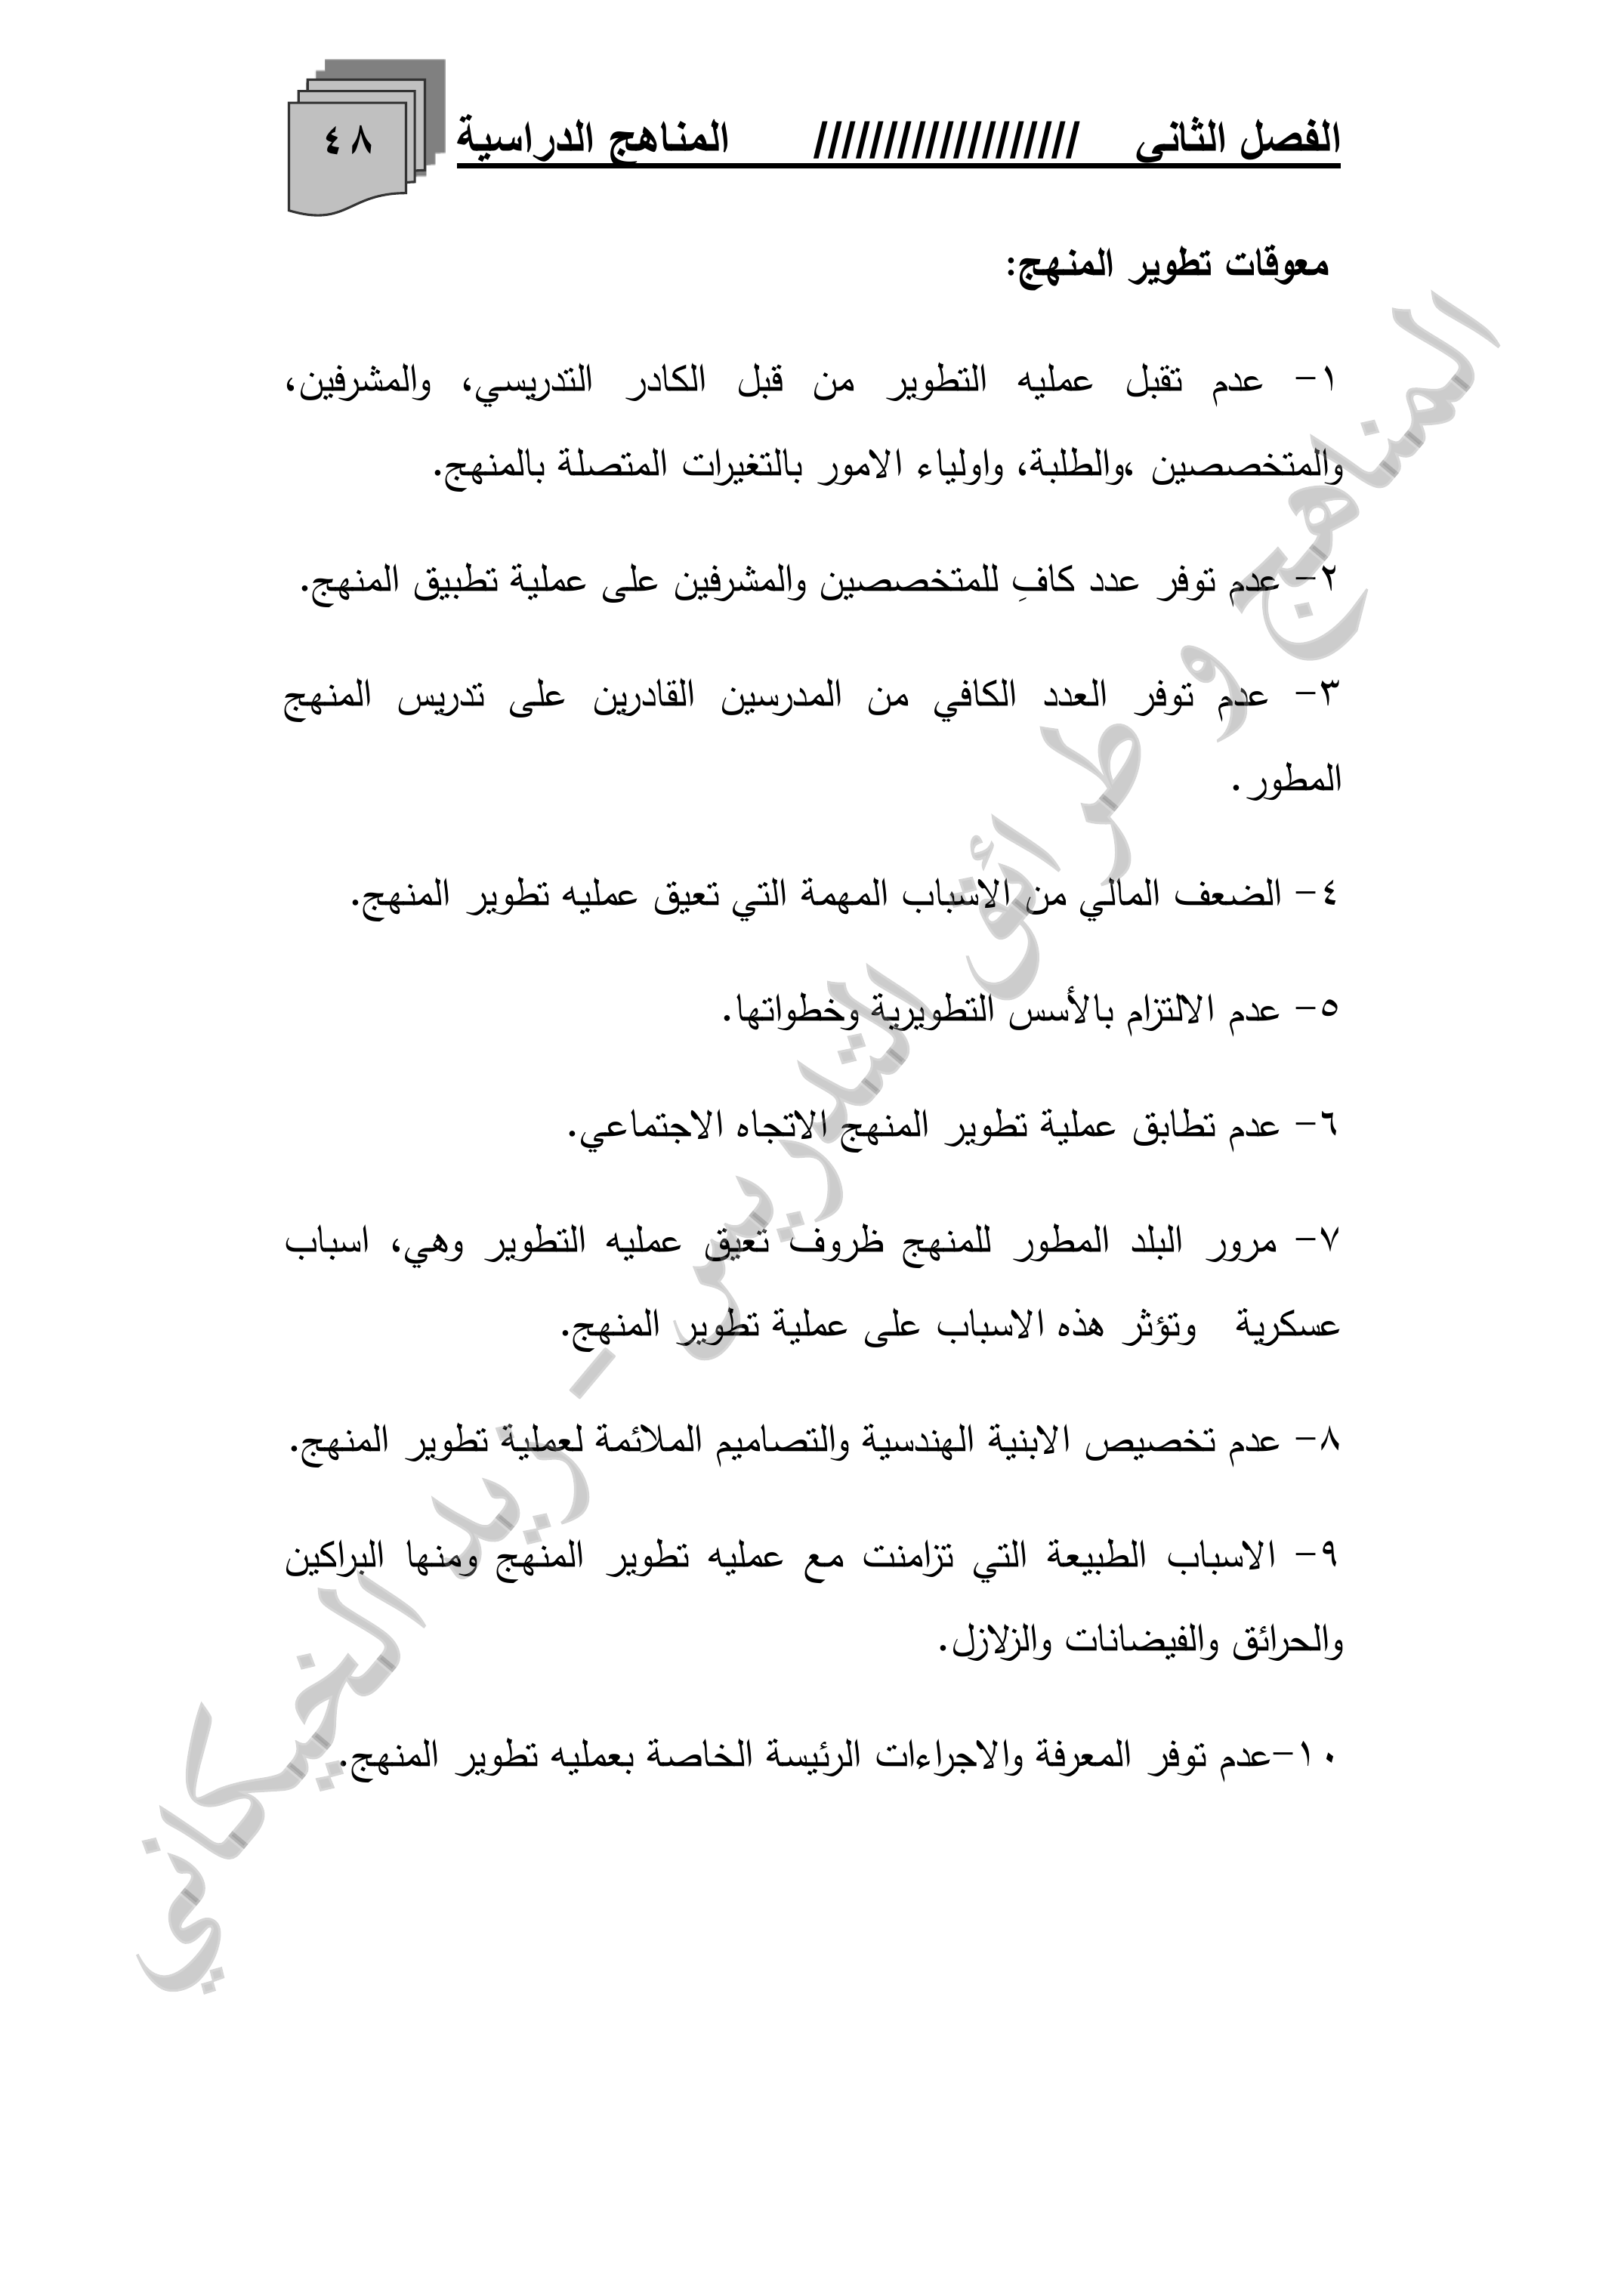 الفصل الثاني /////////////////// المناهج الدراسية ٤٨
معوقات تطوير المنهج:
١- عدم تقبل عمليه التطوير من قبل الكادر التدريسي، والمشرفين،
والمتخصصين ،والطلبة، واولياء الامور بالتغيرات المتصلة بالمنهج.
٢- عدم توفر عدد كافِ للمتخصصين والمشرفين على عملية تطبيق المنهج.
٣- عدم توفر العدد الكافي من المدرسين القادرين على تدريس المنهج
المطور.
٤- الضعف المالي من الاسباب المهمة التي تعيق عمليه تطوير المنهج.
٥- عدم الالتزام بالأسس التطويرية وخطواتها.
٦- عدم تطابق عملية تطوير المنهج الاتجاه الاجتماعي.
٧- مرور البلد المطور للمنهج ظروف تعيق عمليه التطوير وهي، اسباب
عسكرية وتؤثر هذه الاسباب على عملية تطوير المنهج.
٨- عدم تخصيص الابنية الهندسية والتصاميم الملائمة لعملية تطوير المنهج.
٩- الاسباب الطبيعة التي تزامنت مع عمليه تطوير المنهج ومنها البراكين
والحرائق والفيضانات والزلازل.
١٠-عدم توفر المعرفة والاجراءات الرئيسة الخاصة بعمليه تطوير المنهج.
المناهج و طرائق التدريس - زيد الخيكاني